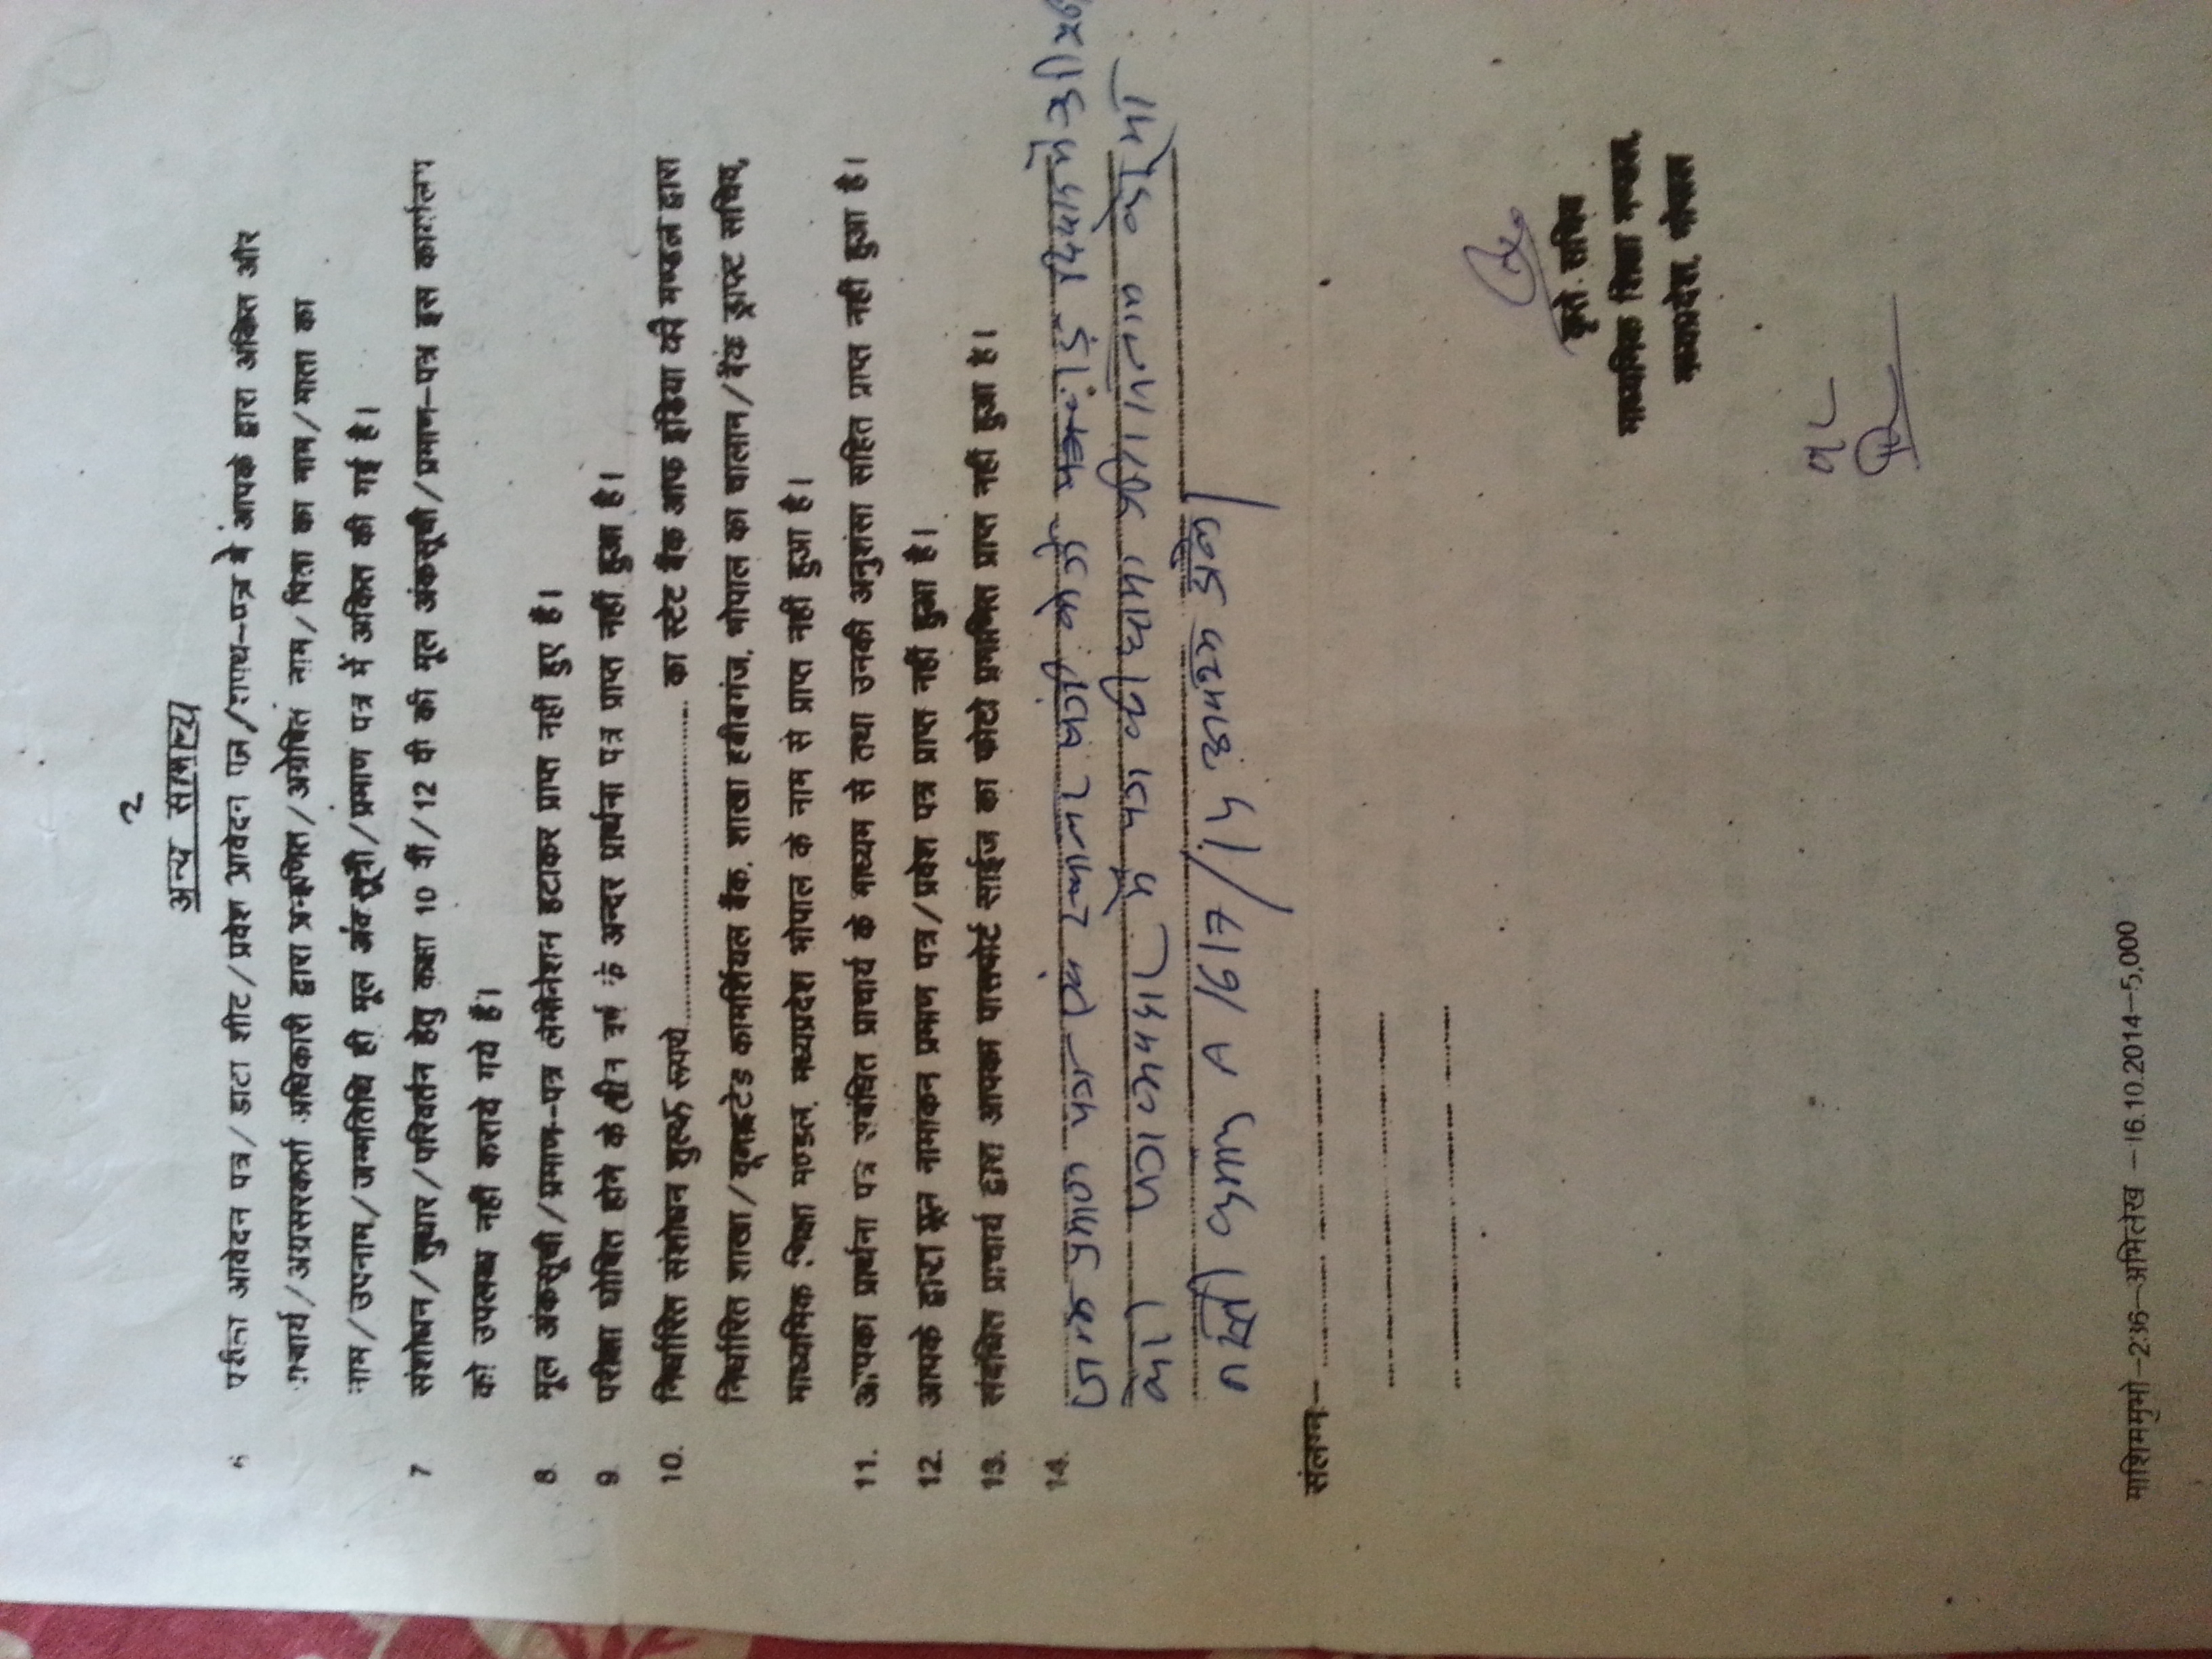 2
अन्य सामान्य
6 परीक्षा आवेदन पत्र/डाटा शीट/प्रवेश आवेदन पत्र/शपथ-पत्र में आपके द्वारा अंकित और
प्राचार्य/अग्रसरकर्ता अधिकारी द्वारा प्रमाणित/अग्रेषित नाम/पिता का नाम/माता का
नाम/उपनाम/जन्मतिथि ही मूल अंकसूची/प्रमाण पत्र में अंकित की गई है।
7 संशोधन/सुधार/परिवर्तन हेतु कक्षा 10 वीं/12 वी की मूल अंकसूची/प्रमाण-पत्र इस कार्यालय
को उपलब्ध नहीं कराये गये हैं।
8. मूल अंकसूची/प्रमाण-पत्र लेमीनेशन हटाकर प्राप्त नहीं हुए हैं।
9. परीक्षा घोषित होने के तीन वर्ष के अन्दर प्रार्थना पत्र प्राप्त नहीं हुआ है।
10. निर्धारित संशोधन शुल्क रूपये.................... का स्टेट बैंक आफ इंडिया की मण्डल द्वारा
निर्धारित शाखा/यूनाइटेड कामर्शियल बैंक, शाखा हबीबगंज, भोपाल का चालान/बैंक ड्राफ्ट सचिव,
माध्यमिक शिक्षा मण्डल, मध्यप्रदेश भोपाल के नाम से प्राप्त नहीं हुआ है।
11. आपका प्रार्थना पत्र संबंधित प्राचार्य के माध्यम से तथा उनकी अनुशंसा सहित प्राप्त नहीं हुआ है।
12. आपके द्वारा मूल नामांकन प्रमाण पत्र/प्रवेश पत्र प्राप्त नहीं हुआ है।
13. संबंधित प्राचार्य द्वारा आपका पासपोर्ट साईज का फोटो प्रमाणित प्राप्त नहीं हुआ है।
14.
16/7/15
संलग्न-
कृते सचिव
माध्यमिक शिक्षा मण्डल,
मध्यप्रदेश, भोपाल
माशिममुभो-236-अभिलेख -16.10.2014-5,000